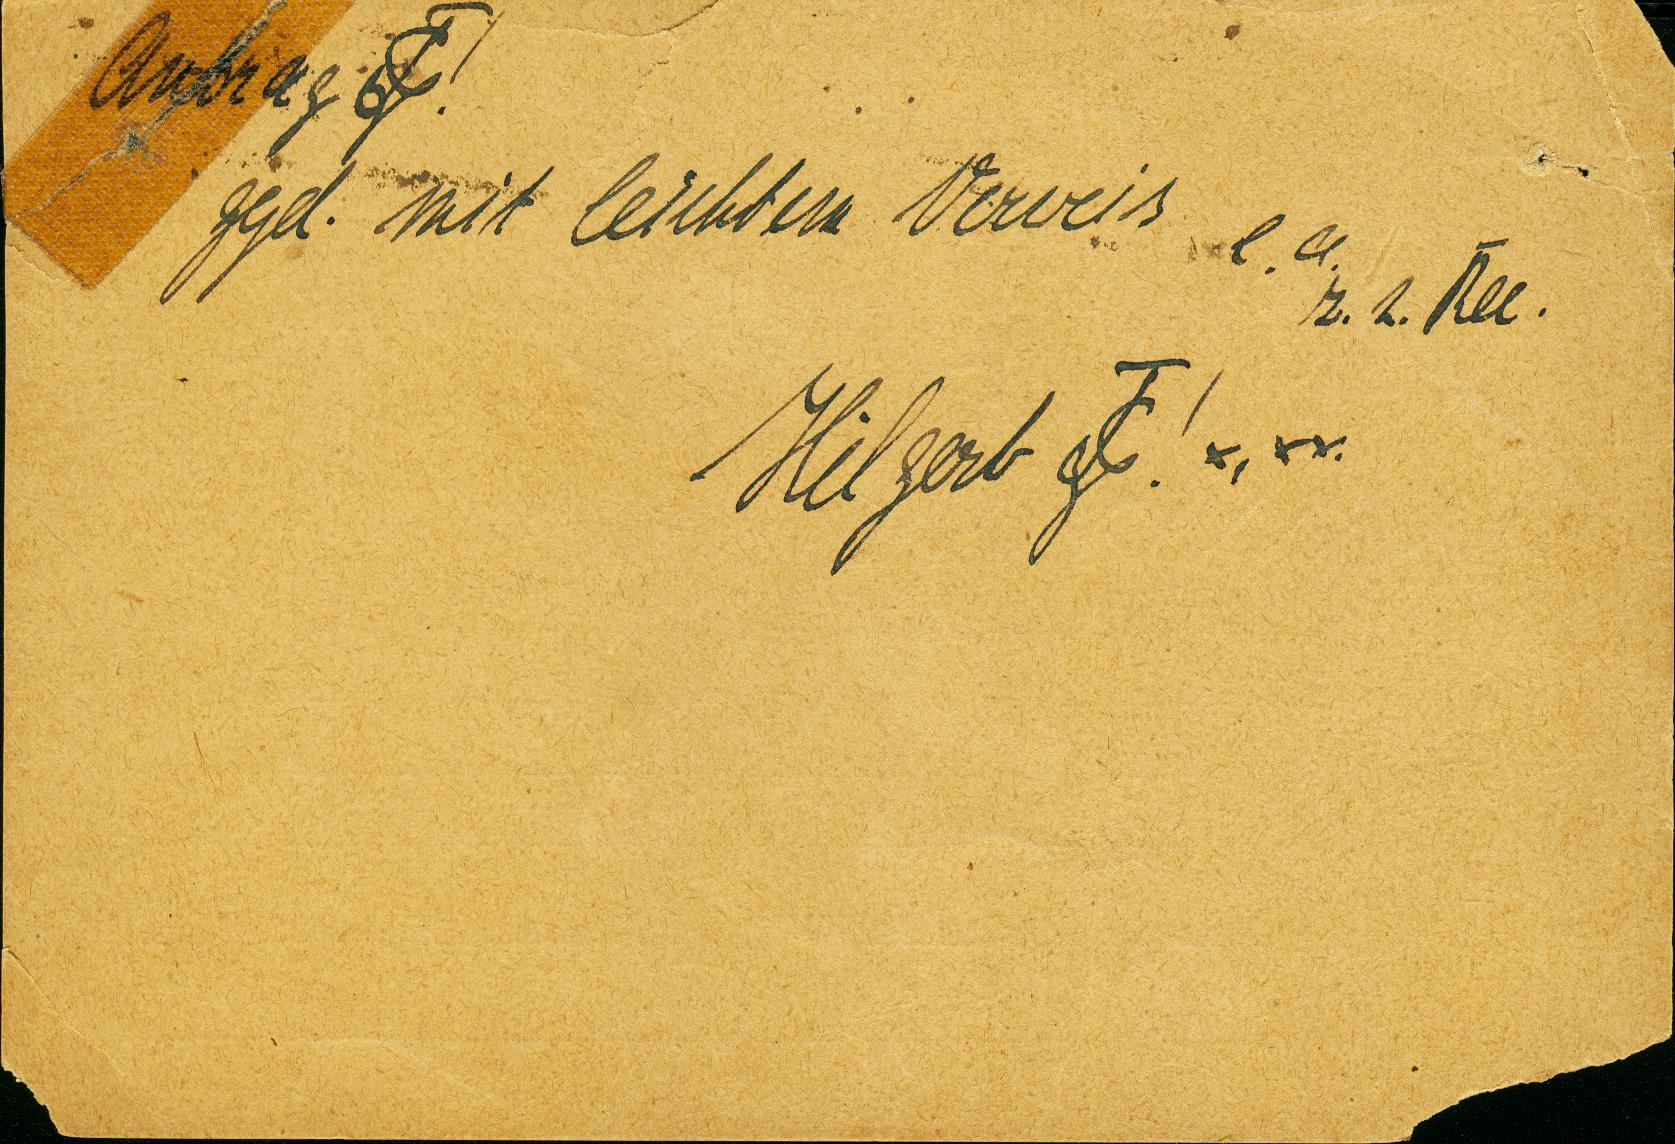 Antrag
gegd. mit leichtem Verweis e. a.
z. z. Rec.
Hilgert x, xx.